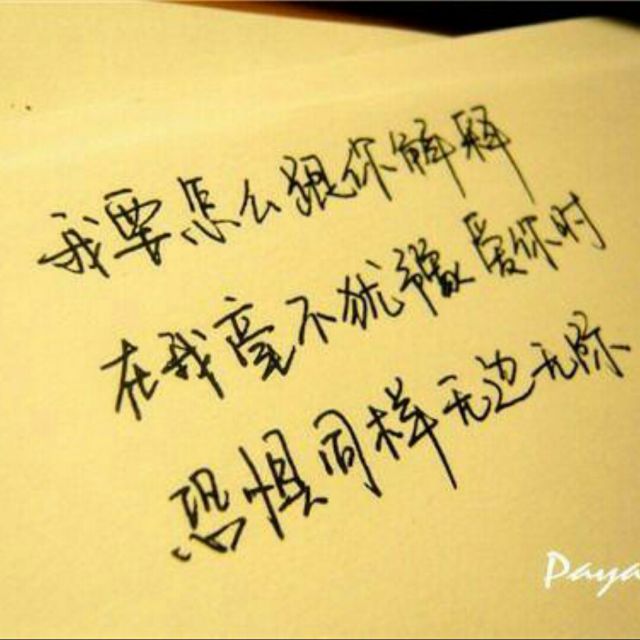 我要怎么跟你解释
在我毫不犹豫爱你时
恐惧同样无边无际
Paya